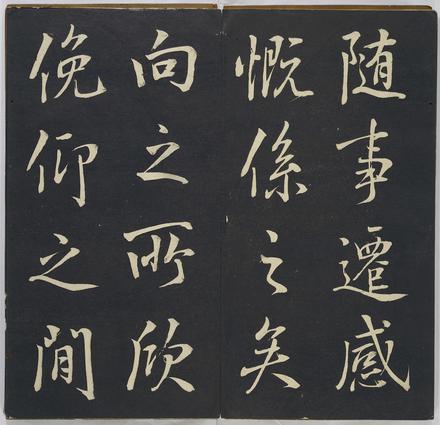 随事遷感
慨係之矣
向之所欣
俛仰之間